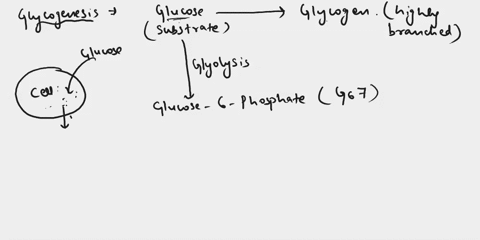 Glycogenesis → Glucose → Glycogen. (highly branched)
(Substrate)
Glucose
Glyolysis
Cell
Glucose - 6 - Phosphate (G67)